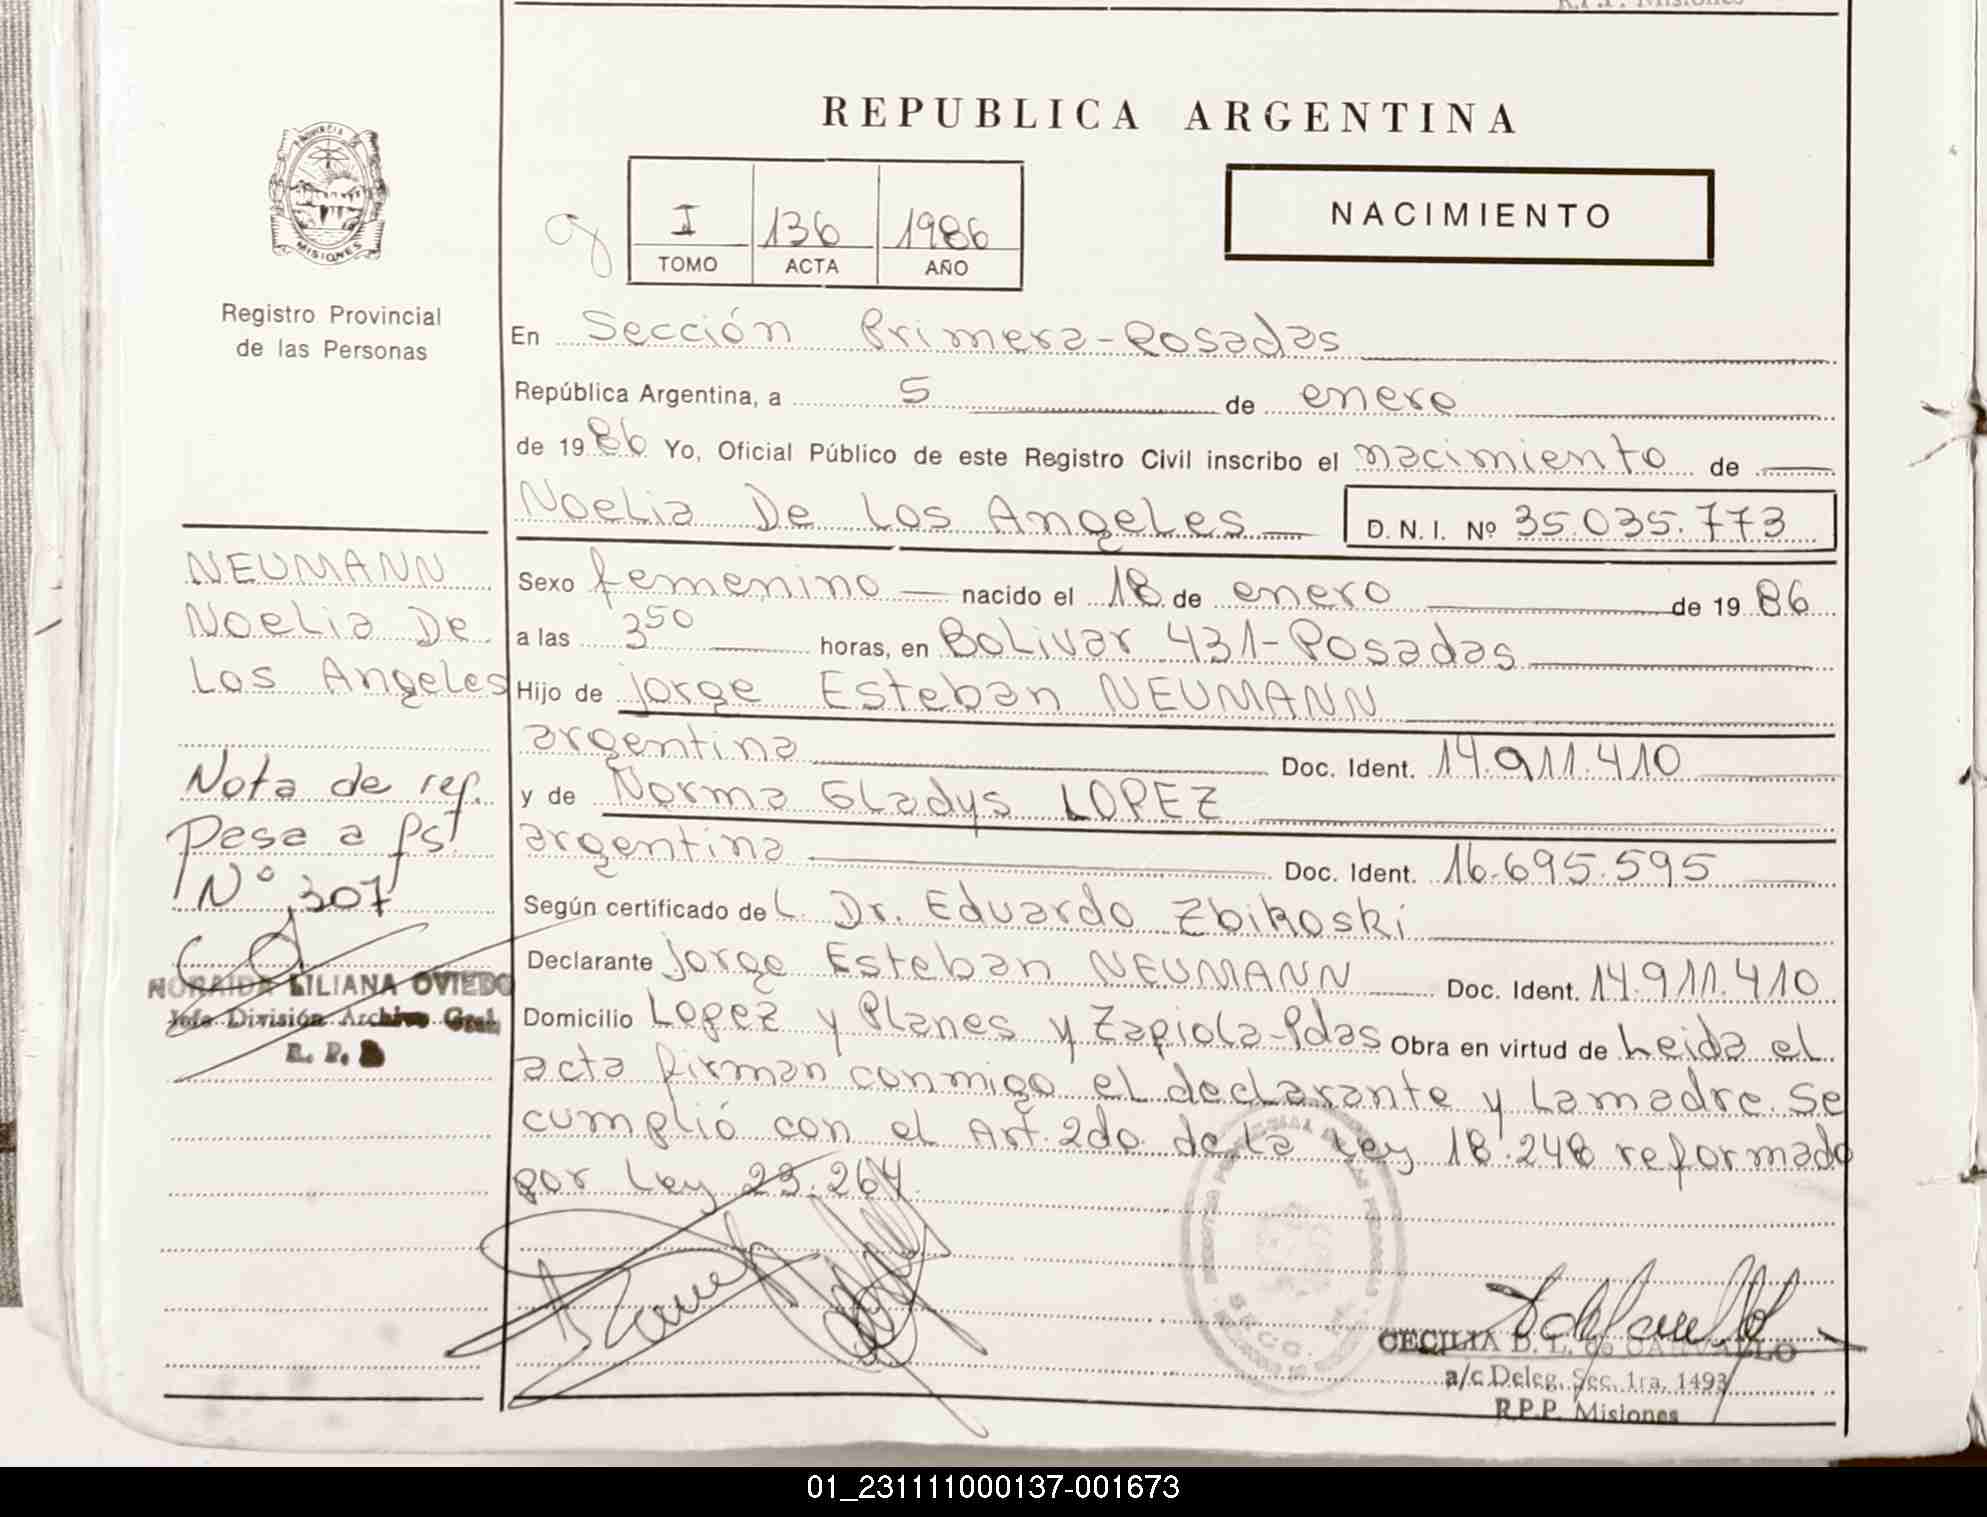 R.P.P. Misiones
REPUBLICA ARGENTINA
PROVINCIA DE
MISIONES
I 136 1986
TOMO ACTA AÑO
NACIMIENTO
Registro Provincial
de las Personas
En Sección Primera-Posadas
República Argentina, a 5 de enero
de 1986 Yo, Oficial Público de este Registro Civil inscribo el nacimiento de
Noelia De Los Angeles D. N. I. Nº 35.035.773
NEUMANN
Noelia De
Los Angeles
Sexo femenino nacido el 18 de enero de 1986
a las 3 50 horas, en Bolivar 431-Posadas
Hijo de Jorge Esteban NEUMANN
argentina Doc. Ident. 14.911.410
y de Norma Gladys LOPEZ
argentina Doc. Ident. 16.695.595
Nota de ref.
Pasa a fs.
Nº 307
NORAIDA LILIANA OVIEDO
Jefe División Archivo Gral.
R. P. P
Según certificado de L. Dr. Eduardo Zbikoski
Declarante Jorge Esteban NEUMANN Doc. Ident. 14.911.410
Domicilio Lopez y Planes y Zapiola-Pdas Obra en virtud de Leida el
acta firman conmigo el declarante y la madre. Se
cumplió con el Art. 2do. de la Ley 18.248 reformado
por Ley 23.264.
CECILIA D. L. de CARVALLO
a/c Deleg. Sec. 1ra. 1493
R.P.P. Misiones
01_231111000137-001673